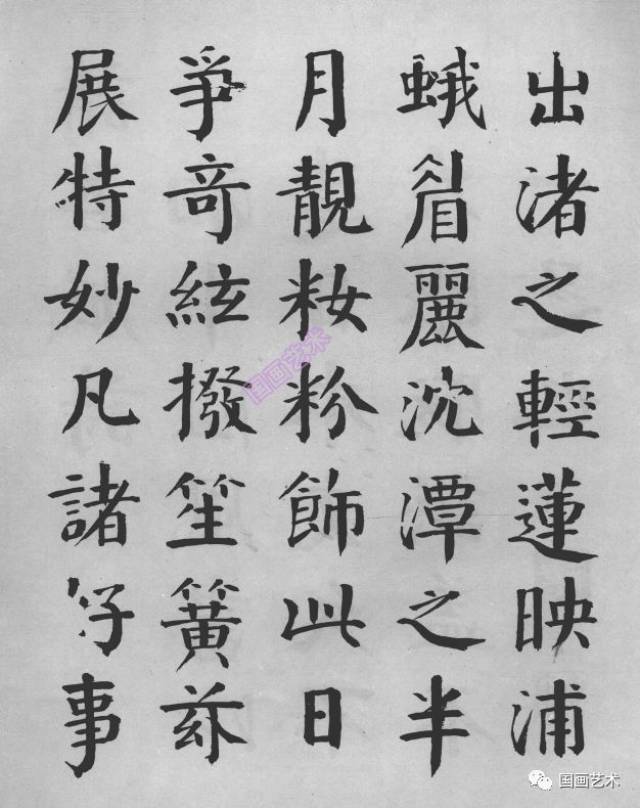 出渚之輕蓮映浦
蛾眉麗沈潭之半
月靚籹粉飾此日
爭奇絃撥笙簧兹
展特妙凡諸好事
国画艺术
国画艺术